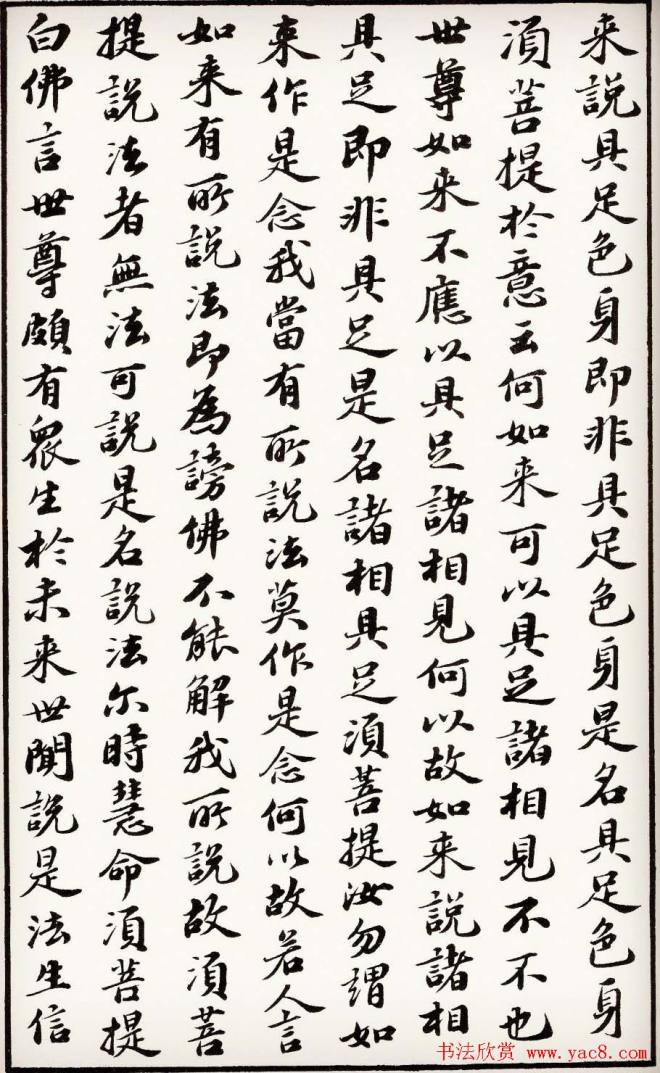 来説具足色身即非具足色身是名具足色身
須菩提於意云何如来可以具足諸相見不不也
世尊如来不應以具足諸相見何以故如来説諸相
具足即非具足是名諸相具足須菩提汝勿謂如
来作是念我當有所説法莫作是念何以故若人言
如来有所説法即為謗佛不能解我所説故須菩
提説法者無法可説是名説法尔時慧命須菩提
白佛言世尊頗有衆生於未来世聞説是法生信
书法欣赏 www.yac8.com